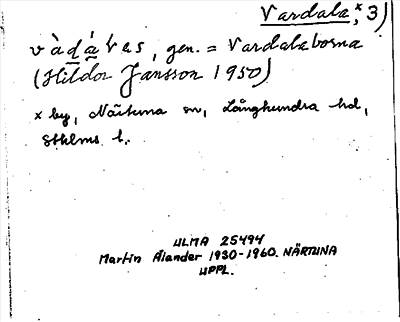 Vardala,× 3)
vàḏá̱ḷas, gen. = Vardalaborna
(Hildor Jansson 1950)
× by, Närtuna sn, Långhundra hd,
Sthlms l.
ULMA 25494
Martin Ålander 1930-1960. NÄRTUNA
UPPL.